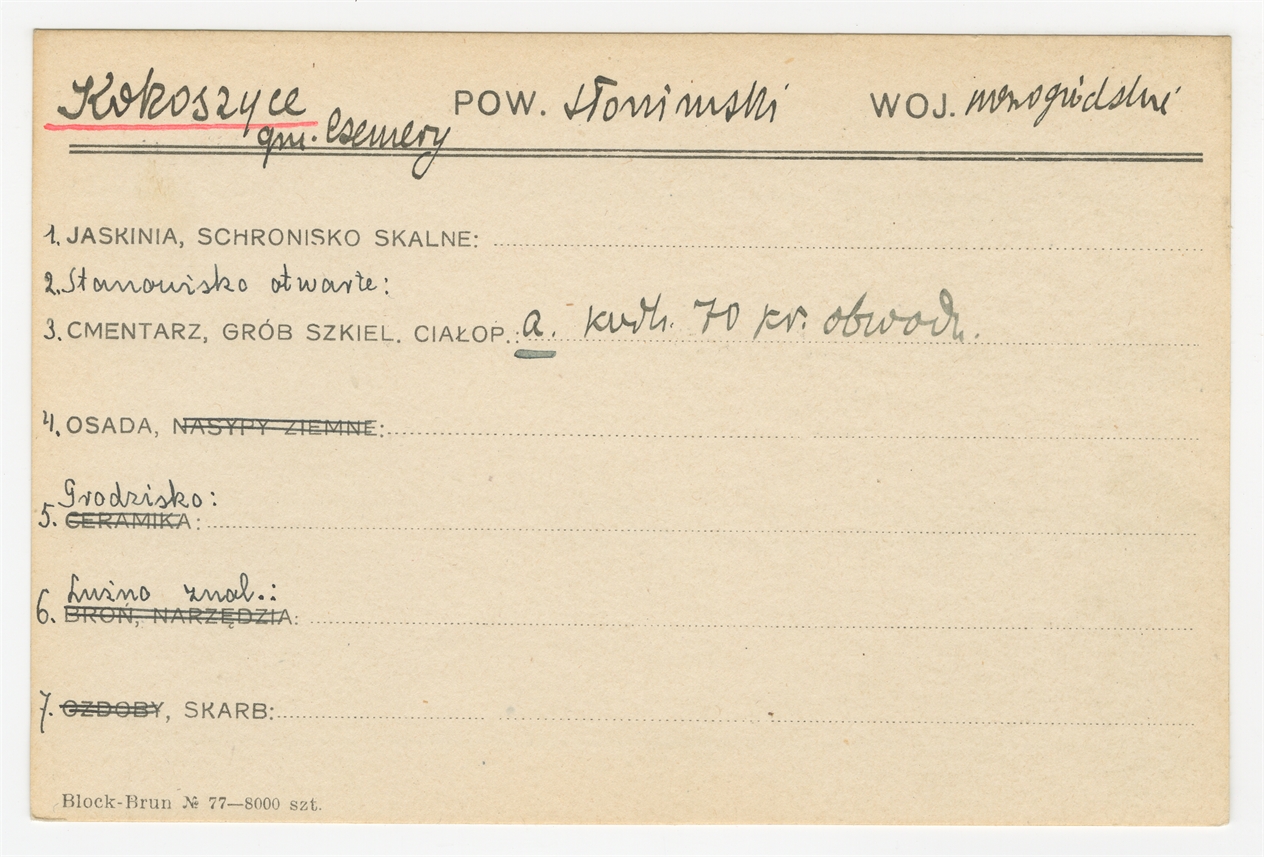 Kokoszyce POW. słonimski WOJ. nowogródzki
gm. Czemery
1. JASKINIA, SCHRONISKO SKALNE:
2. Stanowisko otwarte:
3. CMENTARZ, GRÓB SZKIEL. CIAŁOP.: a. kurh. 70 kr. obwodu.
4. OSADA, NASYPY ZIEMNE:
Grodzisko:
5. CERAMIKA:
Luźno znal.:
6. BROŃ, NARZĘDZIA:
7. OZDOBY, SKARB:
Block-Brun № 77—8000 szt.